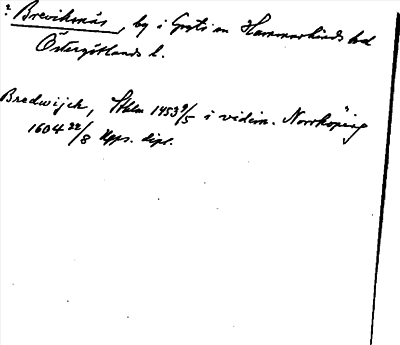 ? Breviksnäs, by i Gryts sn Hammarkinds hd
Östergötlands l.
Bredwijck, Sthlm 1453 9/5 i vidim. Norrköping
1604 22/8 Upps. dipl.